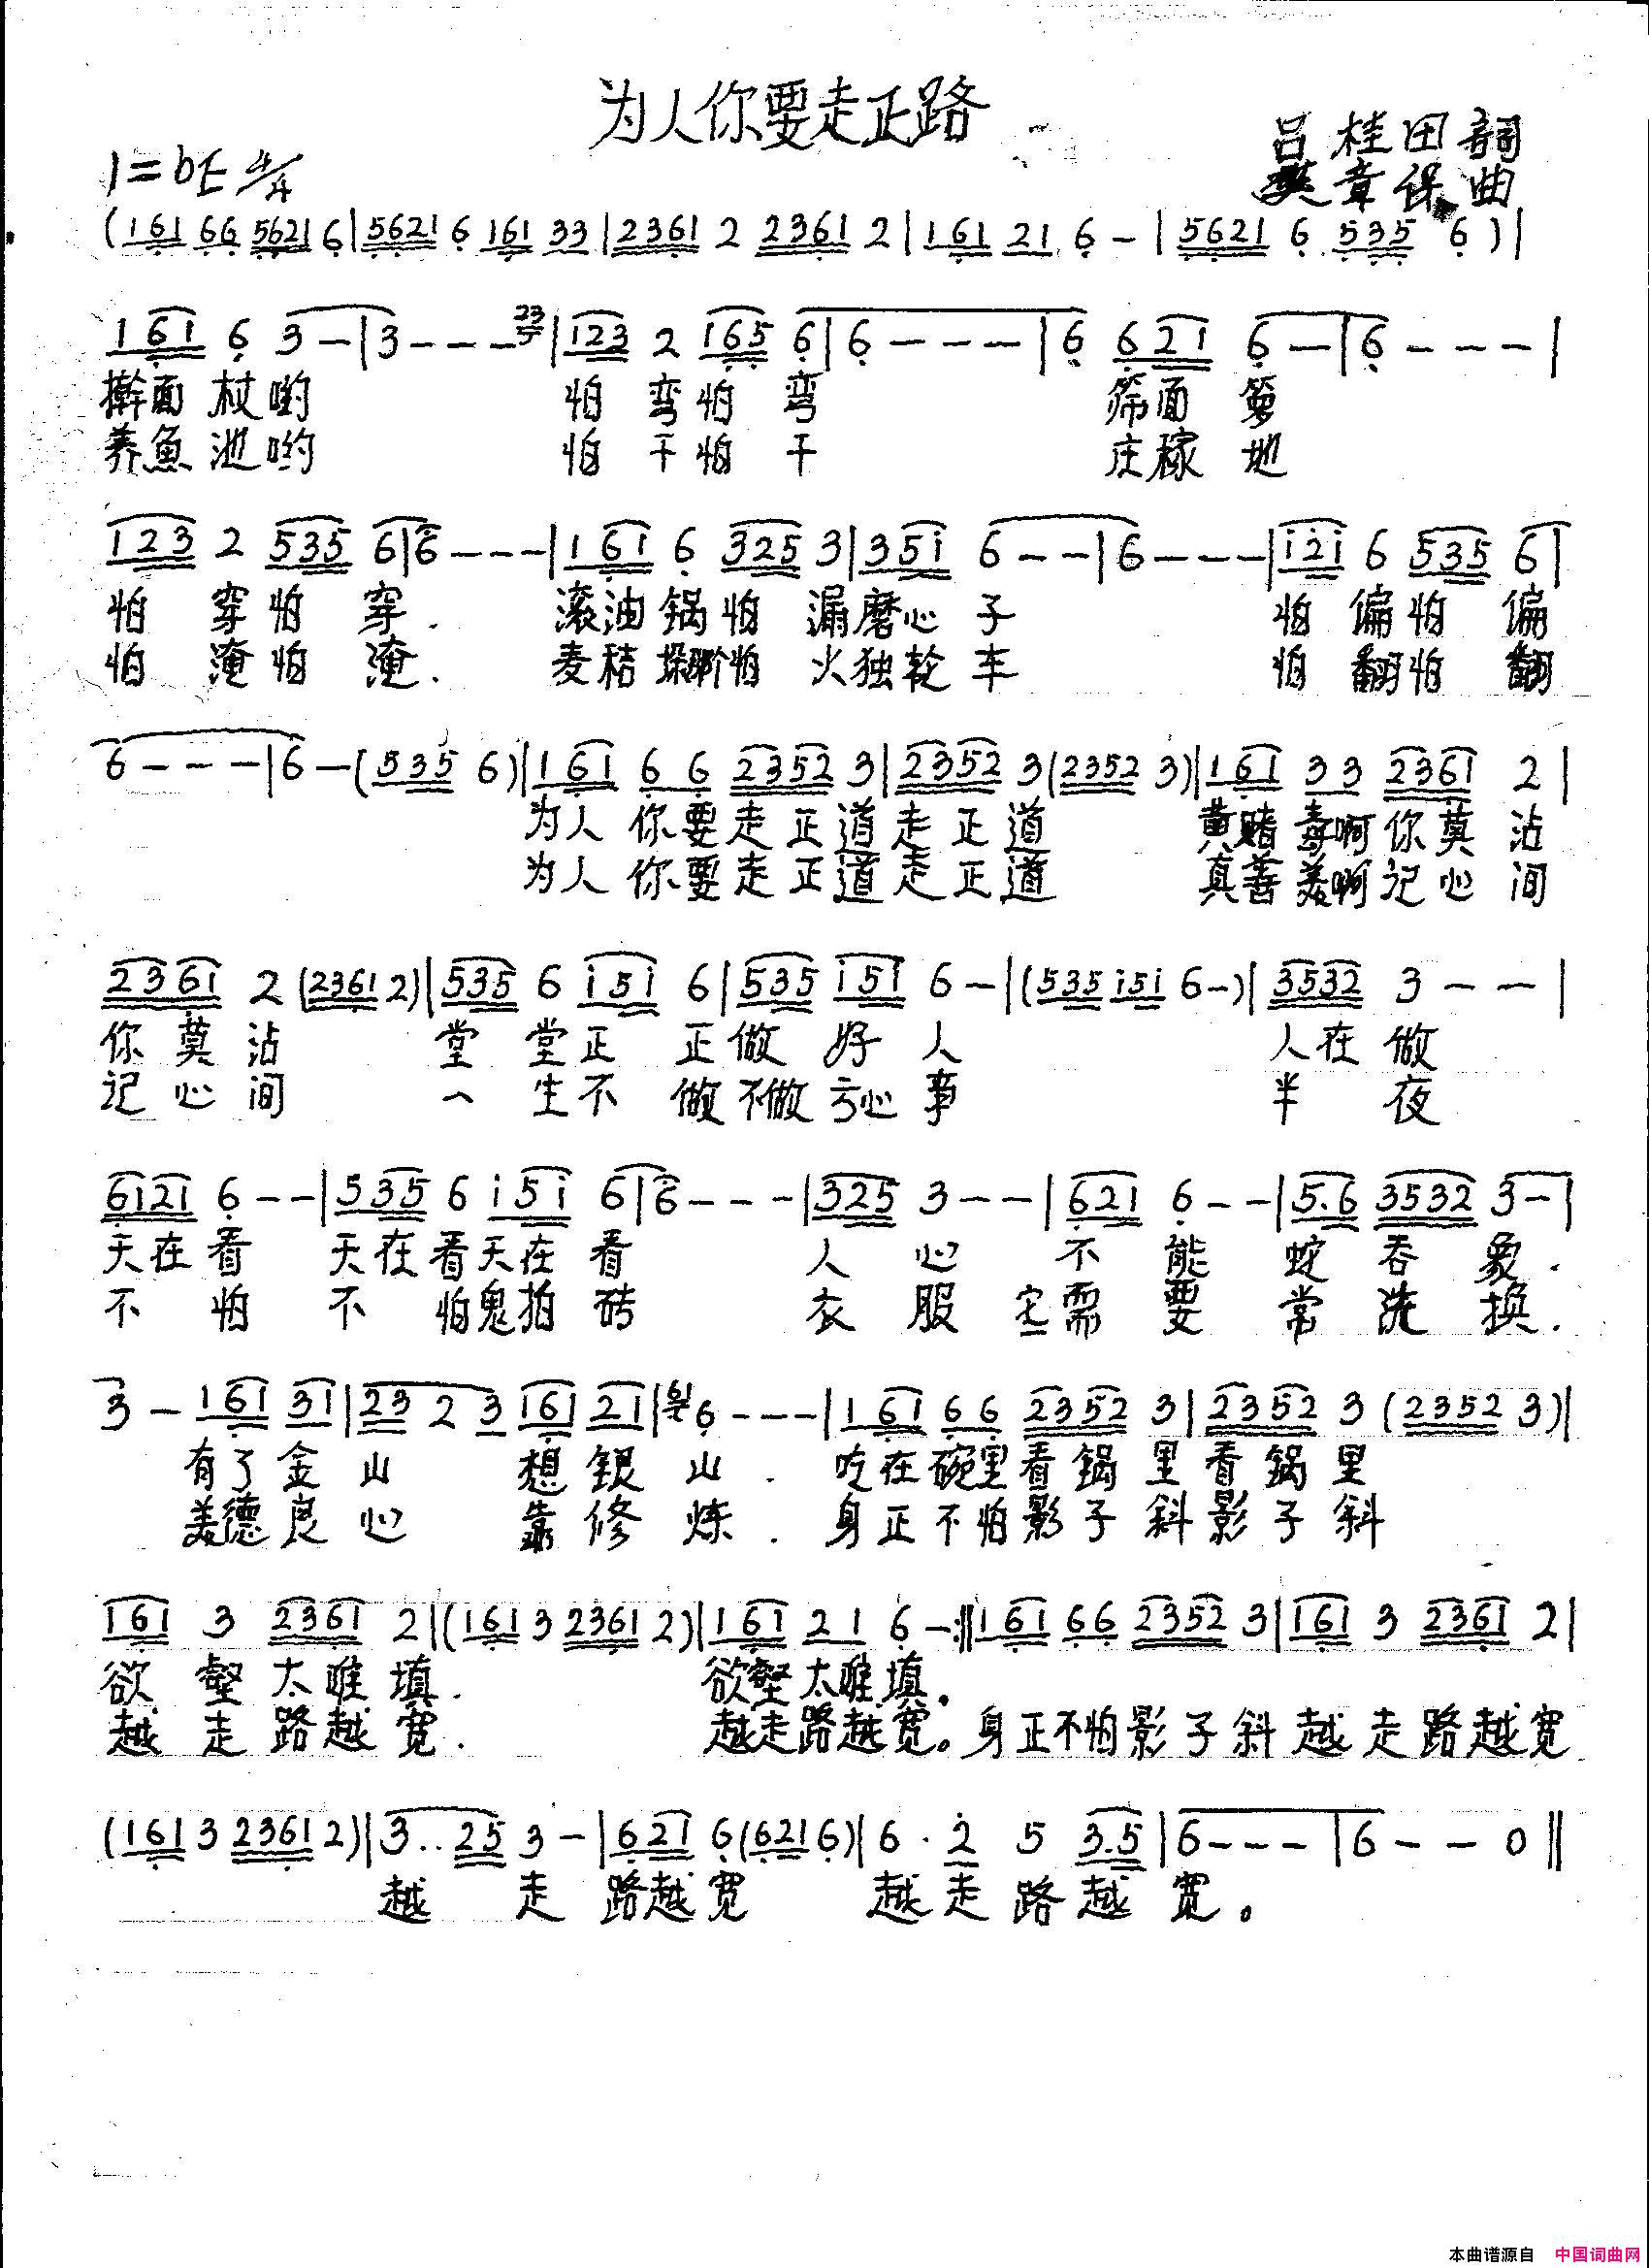 为人你要走正路
1=bE 4/4
吕桂田詞
章保曲
(161 66 5621 6|5621 6 161 33|2361 2 2361 2|161 21 6 -|5621 6 535 6)|
161 6 3 -|3 - - - 23|123 2 165 6|6 - - -|6 621 6 -|6 - - -|
擀面杖哟 怕弯怕弯 筛面箩
养魚池哟 怕干怕干 庄稼地
123 2 535 6|6 - - -|161 6 325 3|351 6 - -|6 - - -|121 6 535 6|
怕穿怕穿. 滚油锅怕漏磨心子 怕偏怕偏
怕淹怕淹. 麦秸垛怕火独轮车 怕翻怕翻
6 - - -|6 - (535 6)|161 66 2352 3|2352 3 (2352 3)|161 33 2361 2|
为人你要走正道走正道 黄赌毒啊你莫沾
为人你要走正道走正道 真善美啊记心间
2361 2 (2361 2)|535 6 151 6|535 151 6 -|(535 151 6 -)|3532 3 - -|
你莫沾 堂堂正正做好人 人在做
记心间 一生不做不做亏心事 半夜
6121 6 - -|535 6 151 6|6 - - -|325 3 - -|621 6 - -|5.6 3532 3 -|
天在看 天在看天在看 人心不能蛇吞象.
不怕 不怕鬼拍砖 衣服它需要常洗换.
3 - 161 31|23 2 3 161 21|61 6 - - -|161 66 2352 3|2352 3 (2352 3)|
有了金山想银山. 吃在碗里看锅里看锅里
美德良心靠修炼. 身正不怕影子斜影子斜
161 3 2361 2|(161 3 2361 2)|161 21 6 -:||161 66 2352 3|161 3 2361 2|
欲壑太难填. 欲壑太难填。
越走路越宽. 越走路越宽。身正不怕影子斜越走路越宽
(161 3 2361 2)|3..25 3 -|621 6 (621 6)|6. 2 5 3.5|6 - - -|6 - - 0||
越走路越宽 越走路越宽。
本曲谱源自 中国词曲网